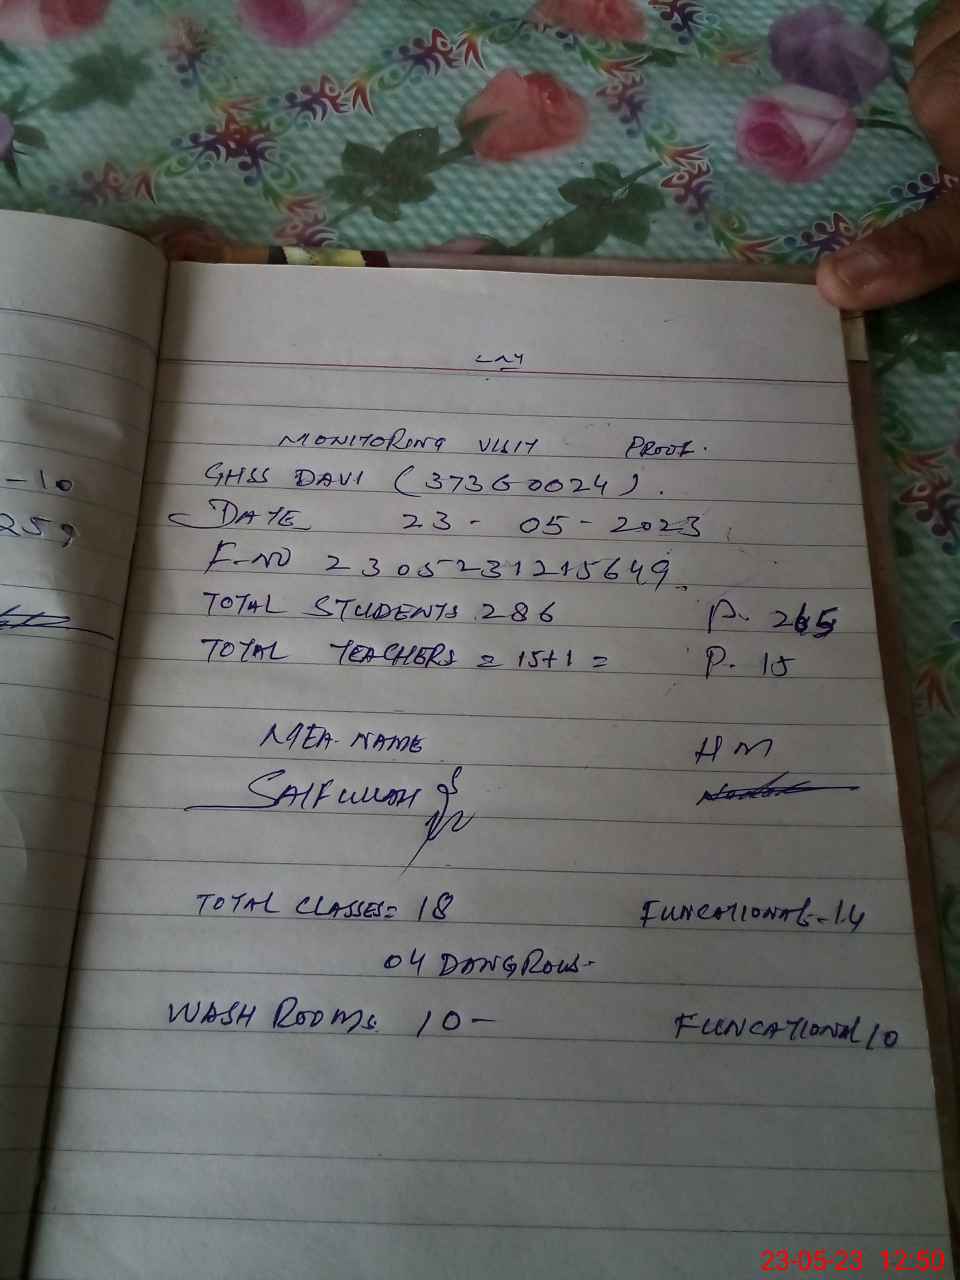 -10
259
MONITORING VISIT PROOF.
GHSS DAVI (37360024).
DATE 23-05-2023
F-NO 2305231215649
TOTAL STUDENTS 286 P. 265
TOTAL TEACHERS = 15+1 = P. 15
MEA-NAME HM
SAIFULLAH
TOTAL CLASSES= 18 FUNCATIONAL-14
04 DANGROUS-
WASH ROOMS 10- FUNCATIONAL 10
23-05-23 12:50